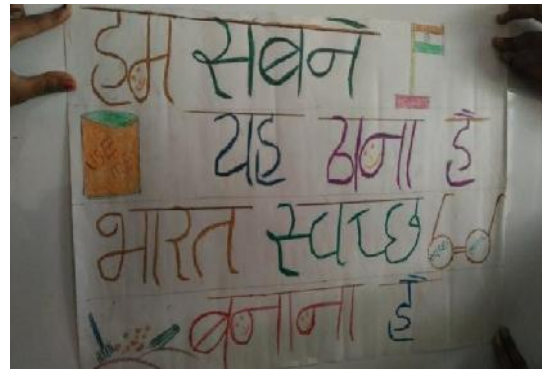 हम सबने
यह ठाना है
USE ME
भारत स्वच्छ
बनाना है